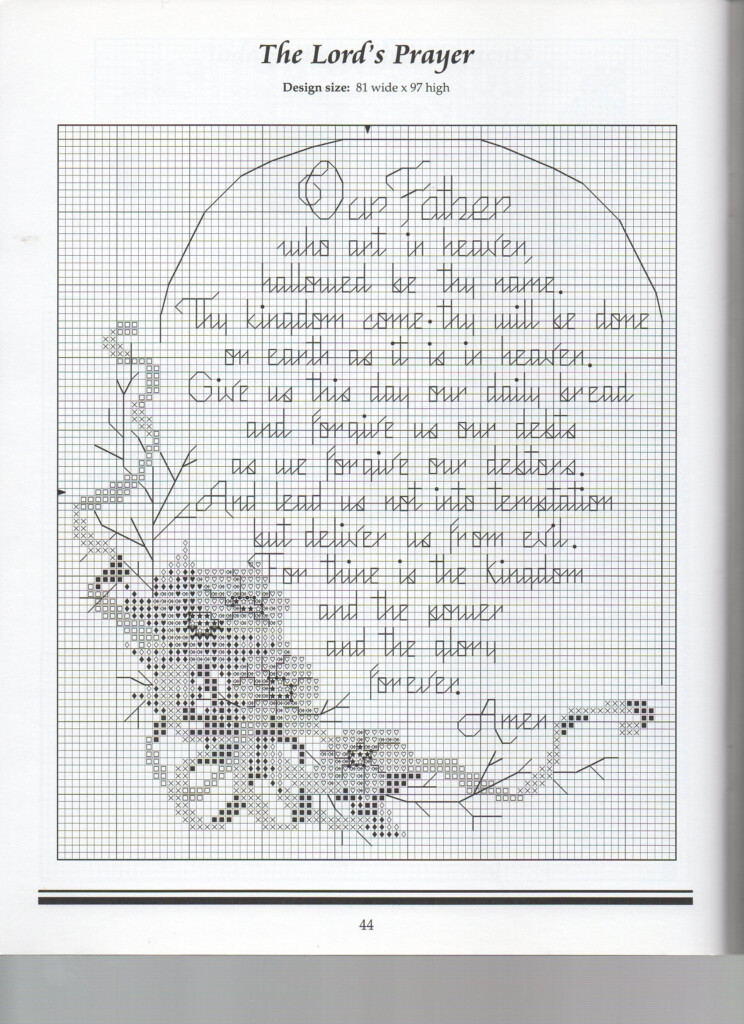 The Lord's Prayer
Design size: 81 wide x 97 high
Our Father
who art in heaven,
hallowed be thy name.
Thy kingdom come. thy will be done
on earth as it is in heaven.
Give us this day our daily bread
and forgive us our debts
as we forgive our debtors.
And lead us not into temptation
but deliver us from evil.
For thine is the kingdom
and the power
and the glory
forever.
Amen
44